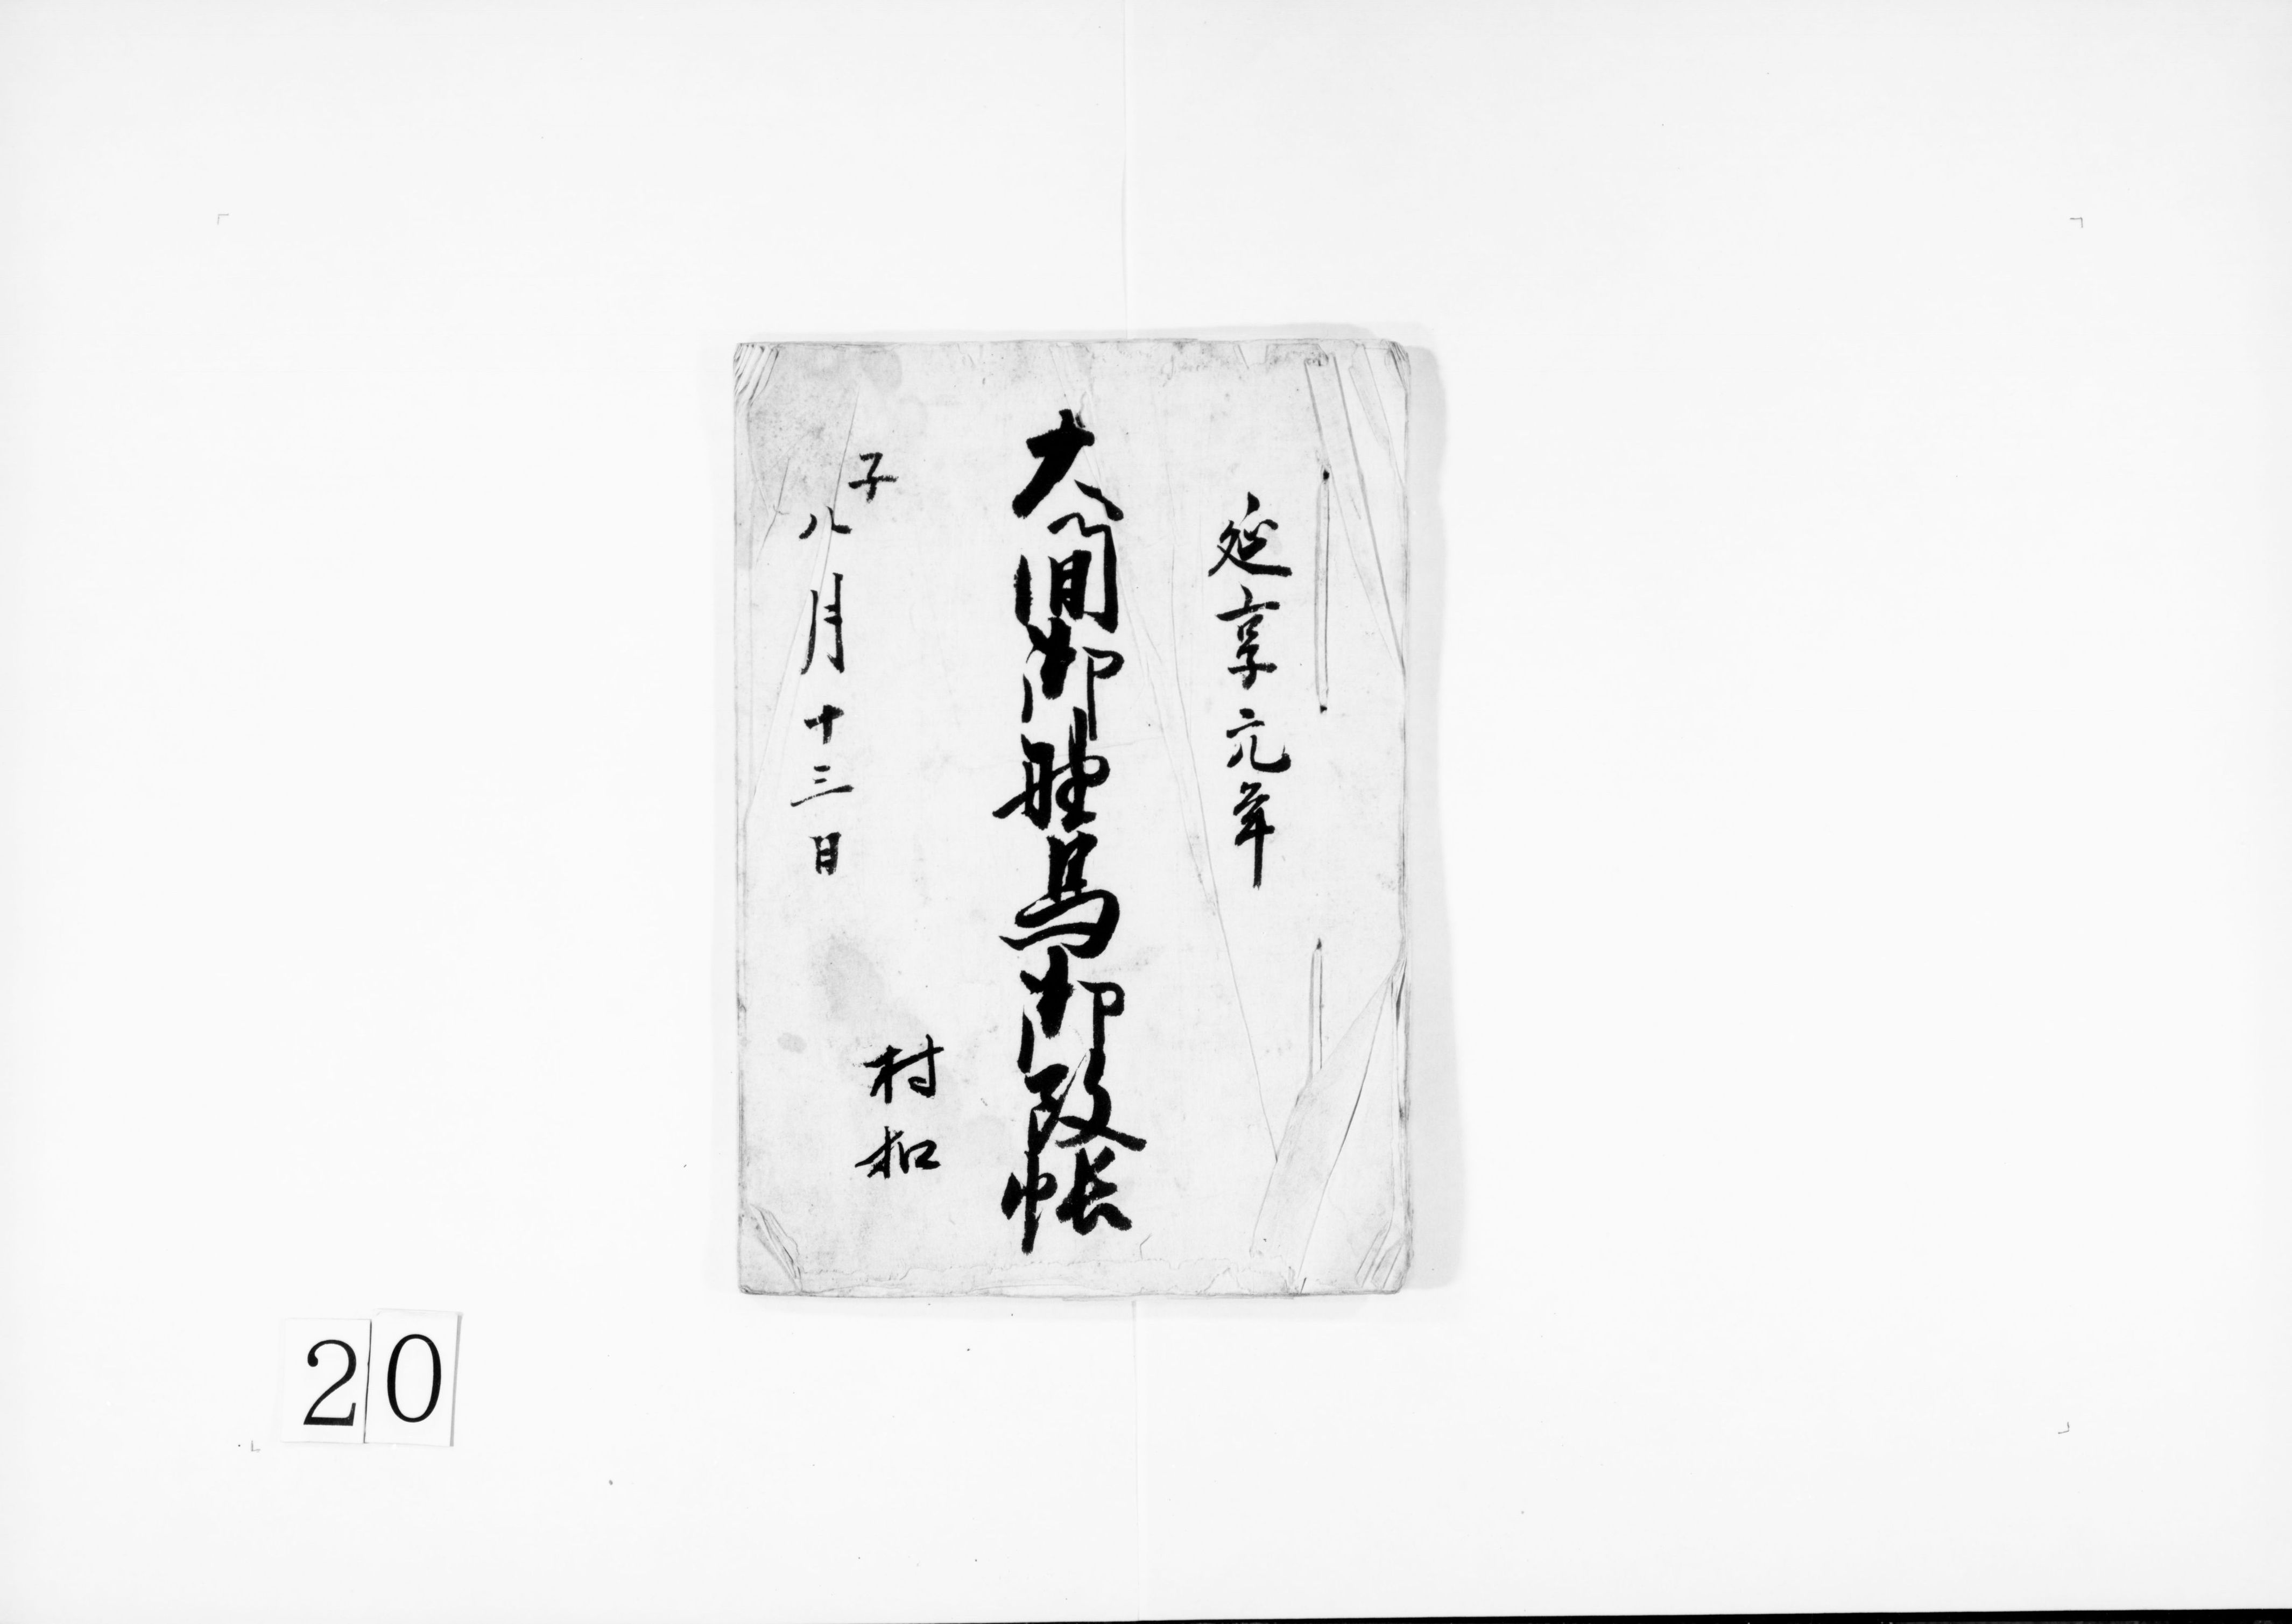 延享元年
大間御野馬御改帳
子
八月十三日
村扣
20